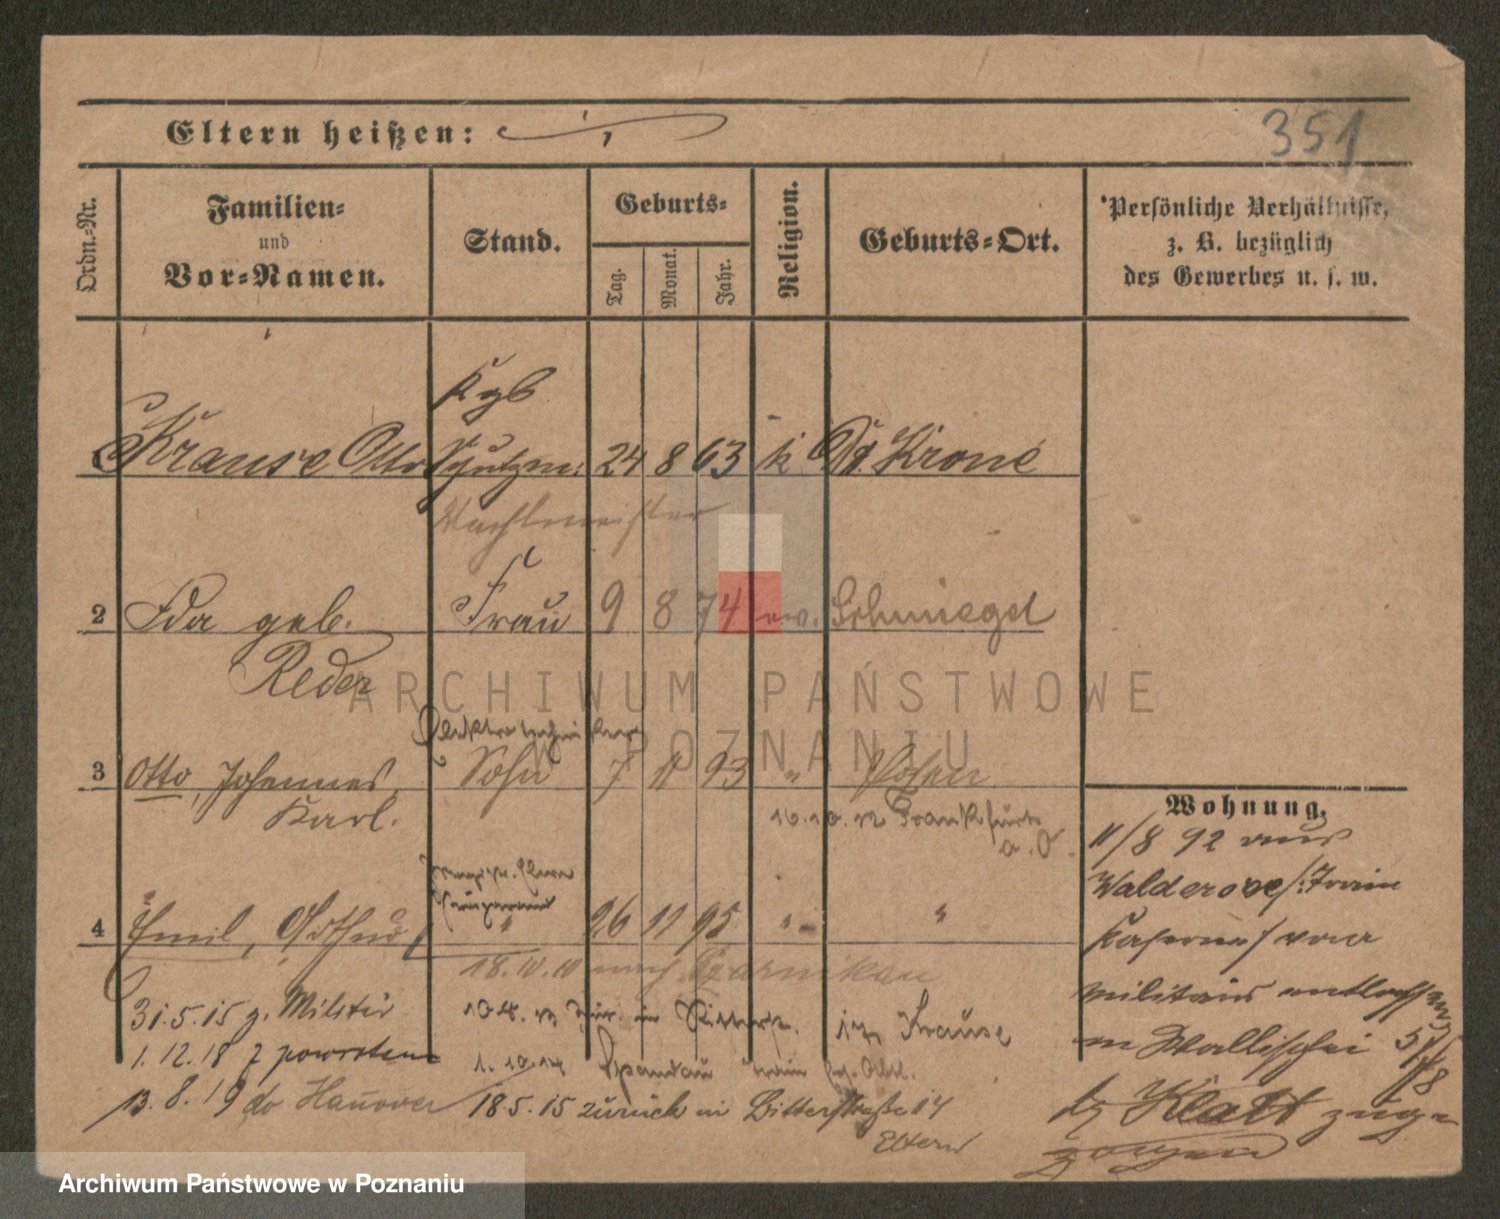 Eltern heißen:
351
Ordn.-Nr.
Familien-
und
Vor-Namen.
Stand.
Geburts-
Tag.
Monat.
Jahr.
Religion.
Geburts-Ort.
Persönliche Verhältnisse,
z. B. bezüglich
des Gewerbes u. s. w.
Kgb
Krause Otto Schutzm. 24 8 63 k Dt. Krone
Wachtmeister
2 Ida geb. Frau 9 8 74 ev. Schmiegel
Reder
Elektrotechniker
3 Otto, Johannes, Sohn 7 11 93 " Posen
Karl.
16.10.12 Frankfurt
a. O.
4 Emil, Arthur " 26 11 95 " "
18.10.10 nach Czarnikau
31.5.15 z. Militär
1.12.18 z powrotem
13.8.19 do Hannover
10.4.12 zur. in Ritterstr.
bei Krause
1.10.14 Spandau
18.5.15 zurück in Ritterstraße 14
Eltern
Wohnung.
11/8 92 aus
Waldersee/: Train
Kaserne/ vom
Militair entlassen
in Wallischei 5/
bei Klatt zuge-
zogen
ARCHIWUM PAŃSTWOWE
W POZNANIU
Archiwum Państwowe w Poznaniu